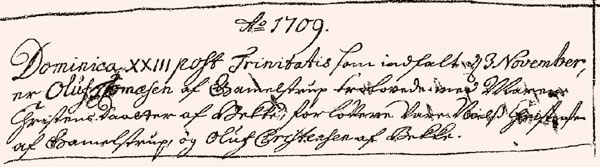 Ao 1709.
Dominica XXIII post Trinitatis som indfalt d 3 November,
er Oluf Tomæsen af Gamelstrup trolovede med Maren
Christens Daatter af Bekke, forlovere vare Niels Christensen
af Gamelstrup, og Oluf Christensen af Bekke.